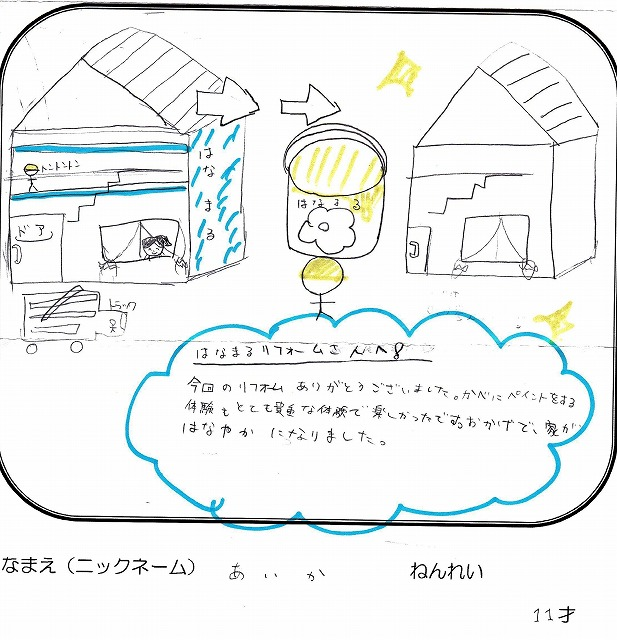 はなまる
トントントン
ドア
トラック
はなまる
はなまるリフォームさんへ
今回のリフォームありがとうございました。かべにペイントをする
体験もとても貴重な体験で楽しかったですおかげで、家が
はなやかになりました。
なまえ（ニックネーム） あいか ねんれい
11才